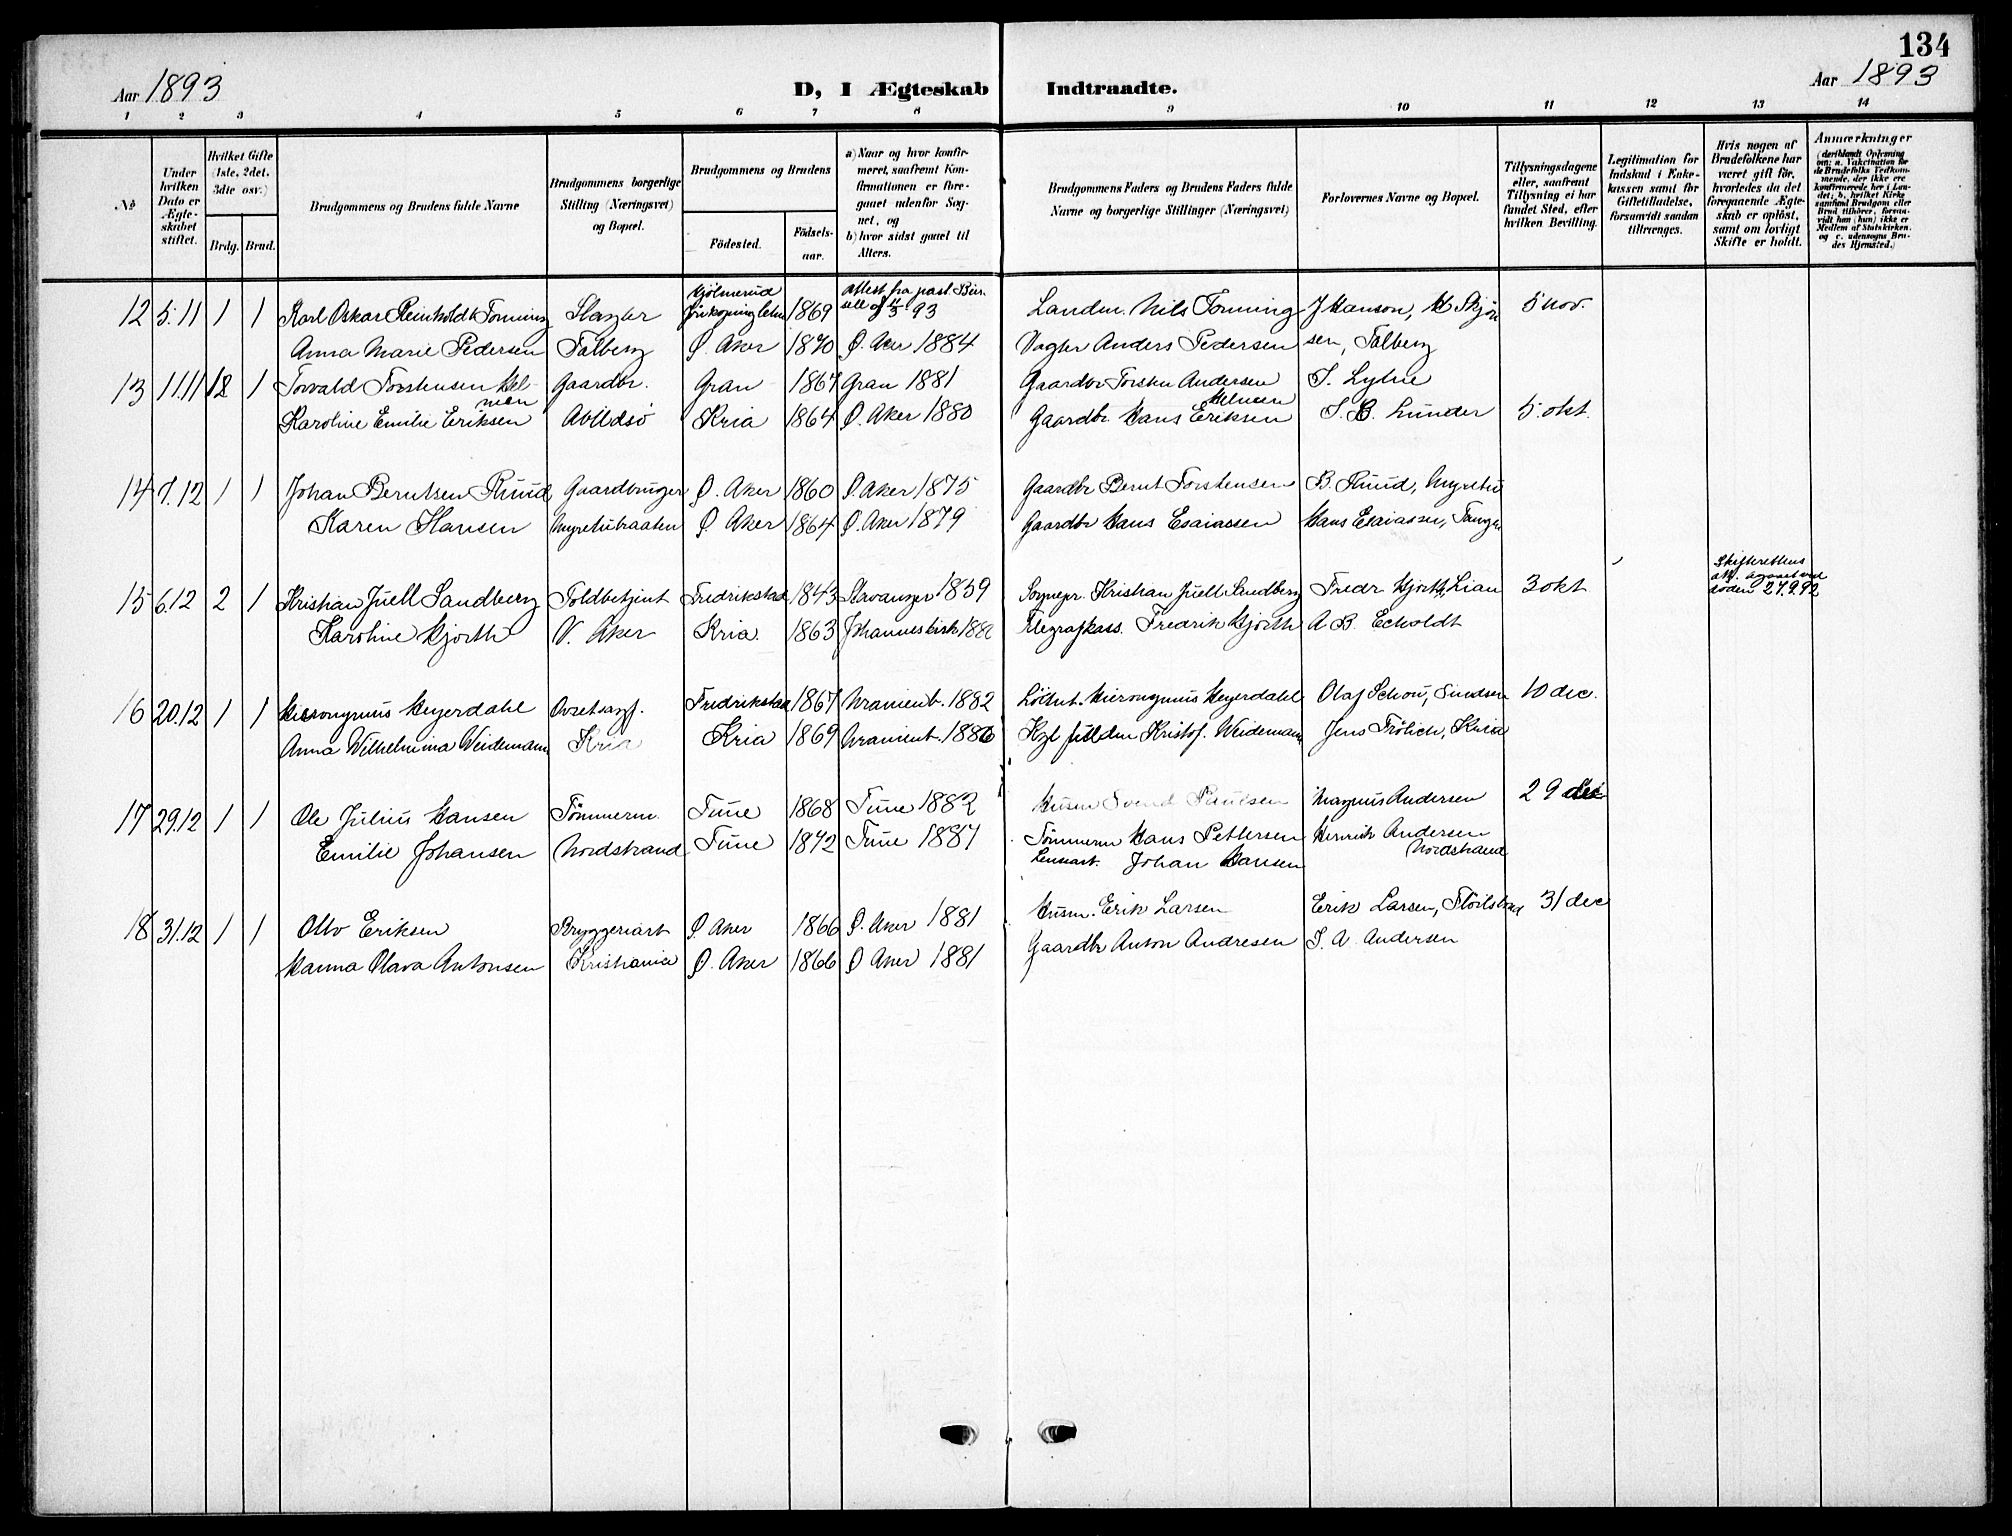 134
Aar 1893 D, I Ægteskab Indtraadte. Aar 1893
1 2 3 4 5 6 7 8 9 10 11 12 13 14
№
Under hvilken Dato er Ægteskabet stiftet.
Hvilket Gifte (1ste, 2det, 3die osv.)
Brdg. Brud.
Brudgommens og Brudens fulde Navne
Brudgommens borgerlige Stilling (Næringsvei) og Bopæl.
Brudgommens og Brudens
Födested. Födselsaar.
a) Naar og hvor konfirmeret, saafremt Konfirmationen er foregaaet udenfor Sognet, og
b) hvor sidst gaaet til Alters.
Brudgommens Faders og Brudens Faders fulde Navne og borgerlige Stillinger (Næringsvei)
Forlovernes Navne og Bopæl.
Tillysningsdagene eller, saafremt Tillysning ei har fundet Sted, efter hvilken Bevilling.
Legitimation for Indskud i Enkekassen samt for Giftetilladelse, forsaavidt saadan tiltrænges.
Hvis nogen af Brudefolkene har været gift før, hvorledes da det foregaaende Ægteskab er oplöst, samt om lovligt Skifte er holdt.
Anmærkninger
(deriblandt Oplysning om: a. Vakcination for de Brudefolks Vedkommende, der ikke ere konfirmerede her i Landet; b. hvilket Kirkesamfund Brudgom eller Brud tilhører, forsaavidt han (hun) ikke er Medlem af Statskirken, og c. udensogns Brudes Hjemsted.)
12 5.11 1 1 Karl Oskar Reinholdt Tonning Slagter 1869 Attest fra past. 93 Landm. Nils Tonning J Hanson, 5 nov.
Anna Marie Pedersen Talberg Ø. Aker 1870 Ø. Aker 1884 Vogter Anders Pedersen sen, Talberg
13 11.11 1 Torvald Torstensen Hel- Gaardbr. Gran 1867 Gran 1881 Gaardbr Torsten Andersen
Karoline Emilie Eriksen Abildsö Kria 1864 Ø. Aker 1880 Gaardbr. Hans Eriksen S. B. Lunder 5. okt.
14 7.12 1 1 Johan Berntsen Ruud Gaardbruger Ø. Aker 1860 Ø. Aker 1875 Gaardbr Bernt Torstensen B. Ruud,
Karen Hansen Ø Aker 1864 Ø. Aker 1879 Gaardbr Hans Esaiassen Hans Esaiassen,
Skifterettens
15 6.12 2 1 Kristian Juell Sandberg Toldbetjent Fredrikstad 1843 Stavanger 1859 Sognepr. Kristian Juell Sandberg Fredr Hjorth, Lian 3 okt døden 27.9.92
Karoline Hjorth V. Aker Kria. 1863 Telegrafkass. Fredrik Hjorth A B. Echoldt
16 20.12 1 1 Hieronymus Heyerdahl Fredrikstad 1867 Uranienb. 1882 Löitnt. Hieronymus Heyerdahl Olaf Schou, 10 dec.
Anna Wilhelmina Weidemann Kria Kria 1869 Kristof. Weidemann Jens Frölich, Kria
17 29.12 1 1 Ole Julius Hansen Tömmerm. Tune 1868 Tune 1882 Magnus Andersen 29 dec
Emilie Johansen Nordstrand Tune 1872 Tune 1887 Tömmerm Hans Pettersen Henrik Andersen
Johan Hansen Nordstrand
18 31.12 1 1 Otto Eriksen Bryggeriarb Ø. Aker 1866 Ø. Aker 1881 Husm. Erik Larsen Erik Larsen, 31 dec
Hanna Olava Antonsen Kristiania Ø. Aker 1866 Ø Aker 1881 Gaardbr Anton Andresen S. A. Andersen